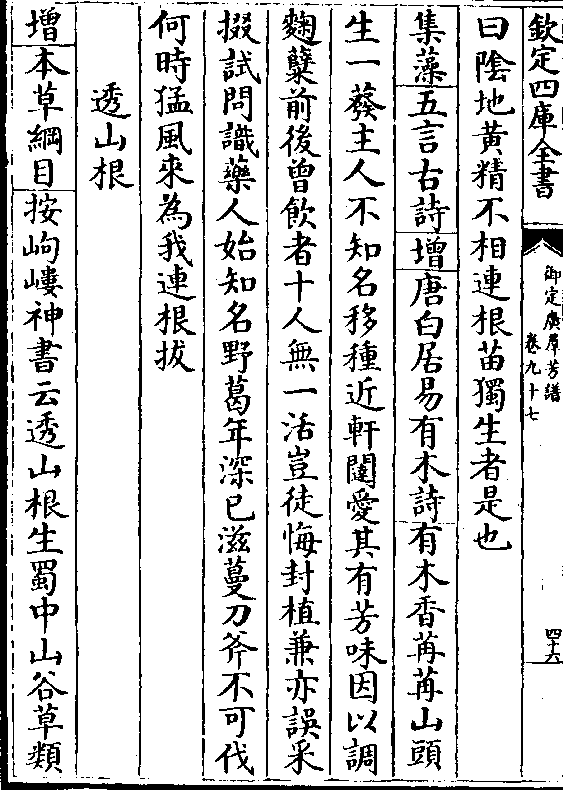 欽定四庫全書
御定廣羣芳譜
卷九十七
四十六
曰陰地黃精不相連根苗獨生者是也
集藻五言古詩增唐白居易有木詩有木香苒苒山頭
生一蕟主人不知名移種近軒闥愛其有芳味因以調
麴糵前後曾飲者十人無一活豈徒悔封植兼亦誤采
掇試問識藥人始知名野葛年深已滋蔓刀斧不可伐
何時猛風來為我連根拔
透山根
增本草綱目按岣嶁神書云透山根生蜀中山谷草類